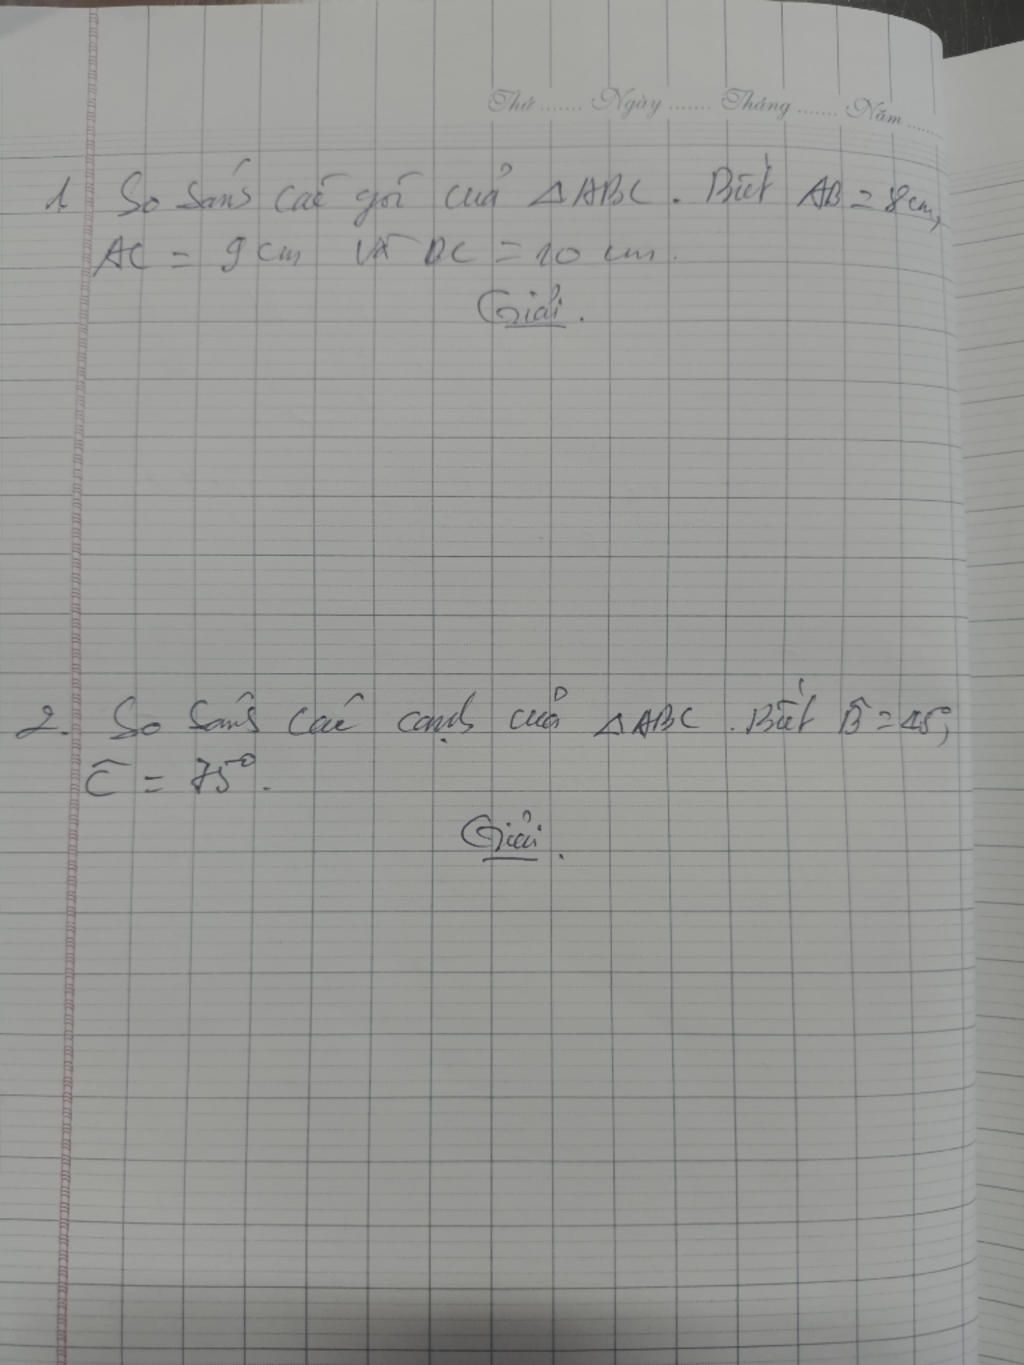 Thứ ....... Ngày ....... Tháng ....... Năm .....
1. So sánh các góc của △ABC. Biết AB = 8cm,
AC = 9cm và BC = 10 cm.
Giải.
2. So sánh các cạnh của △ABC. Biết B̂ = 45°,
Ĉ = 75°.
Giải.